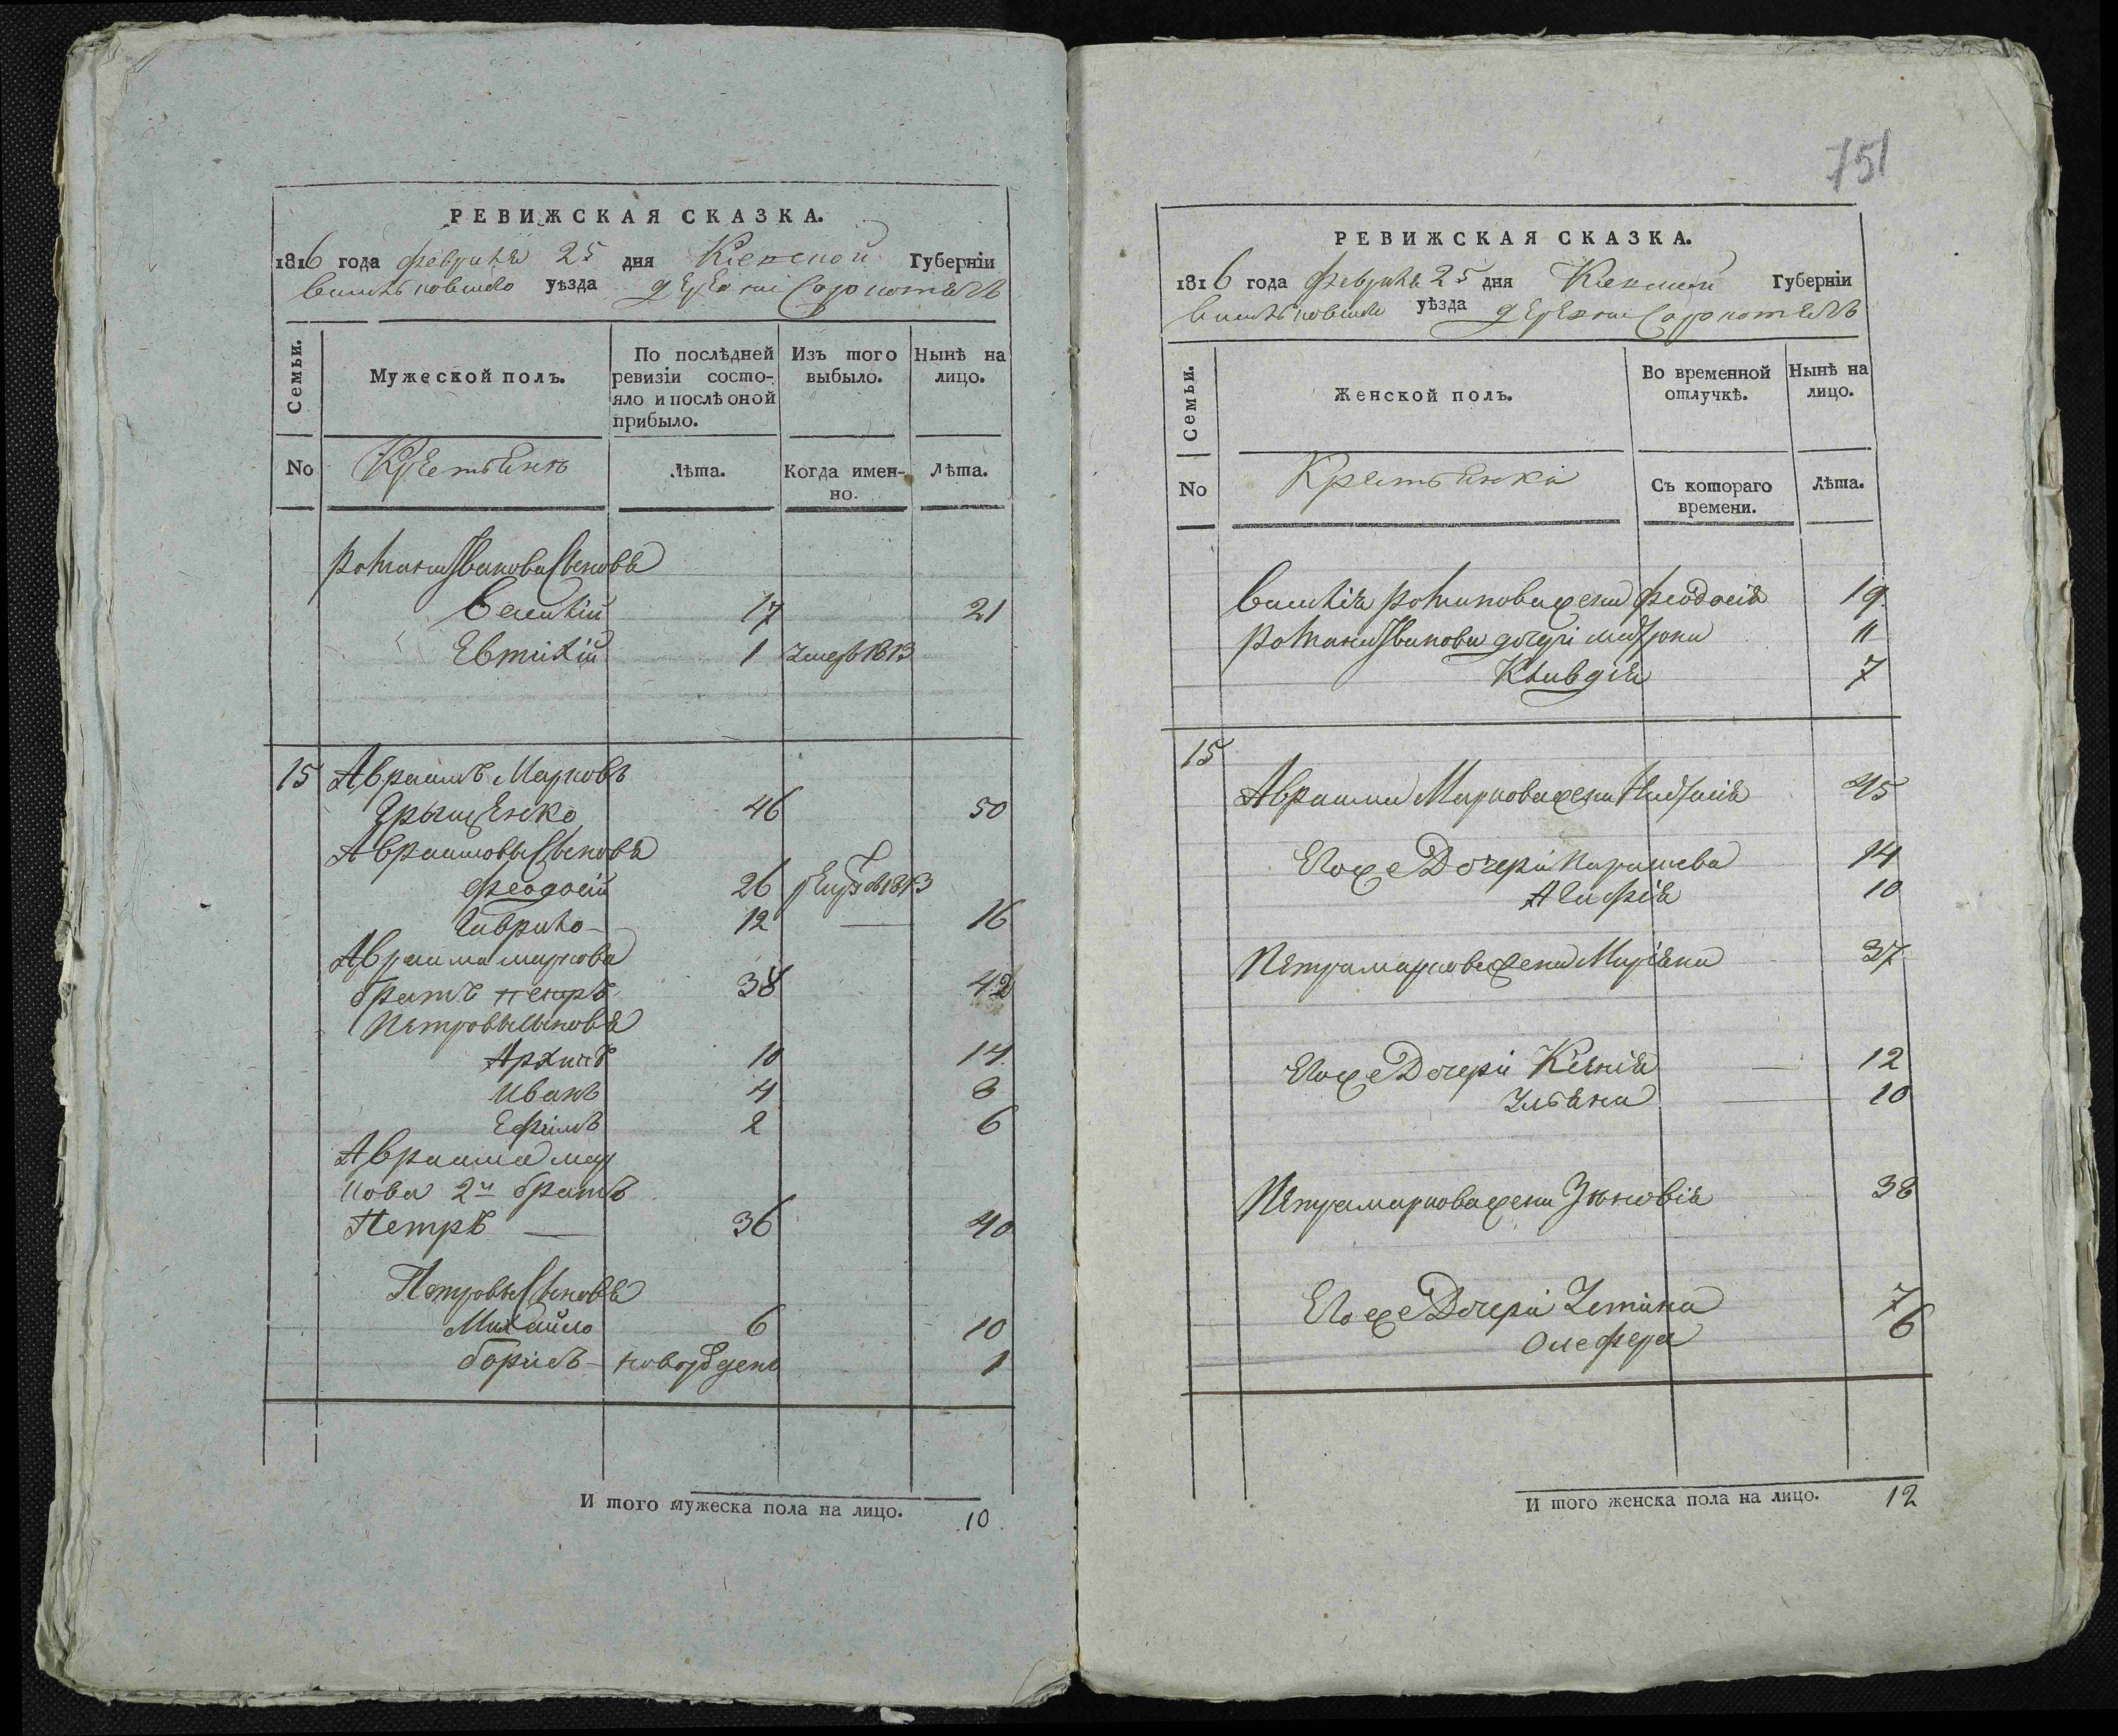 РЕВИЖСКАЯ СКАЗКА.
1816 года февраля 25 дня Киевской Губерніи
Васильковского уѣзда деревни
Семьи.
Мужеской полъ.
По послѣдней ревизіи состояло и послѣ оной прибыло.
Изъ того выбыло.
Нынѣ на лицо.
No
Крестьянъ
Лѣта.
Когда именно.
Лѣта.
Романа Иванова Сыновья
Василій 17 21
Евтихій 1 умеръ 1813
15 Авраамъ Марковъ
Грыщенко 46 50
Авраамовы Сыновья
Феодосій 26 1813
Гаврило 12 — 16
Авраама маркова
братъ петръ 38 42
Петровы Сыновья
Архипъ 10 14
Иванъ 4 8
Ефимъ 2 6
Авраама мар
кова 2й братъ
Петръ — 36 40
Петровы Сыновья
Михайло 6 10
борисъ — 1
И того мужеска пола на лицо. 10
751
РЕВИЖСКАЯ СКАЗКА.
1816 года февраля 25 дня Киевской Губерніи
Васильковского уѣзда деревни
Семьи.
Женской полъ.
Во временной отлучкѣ.
Нынѣ на лицо.
No
Крестьянки
Съ котораго времени.
Лѣта.
Василія Романова жена феодосія 19
Романа Иванова дочери матрона 11
Клавдія 7
15
Авраама Маркова жена Настасія 45
Его же Дочери Параскева 14
Агафія 10
Петра маркова жена Маріяна 37
Его же Дочери Ксенія — 12
Ульяна — 10
Петра маркова жена Зѣновія 38
Его же Дочери 7
6
И того женска пола на лицо. 12